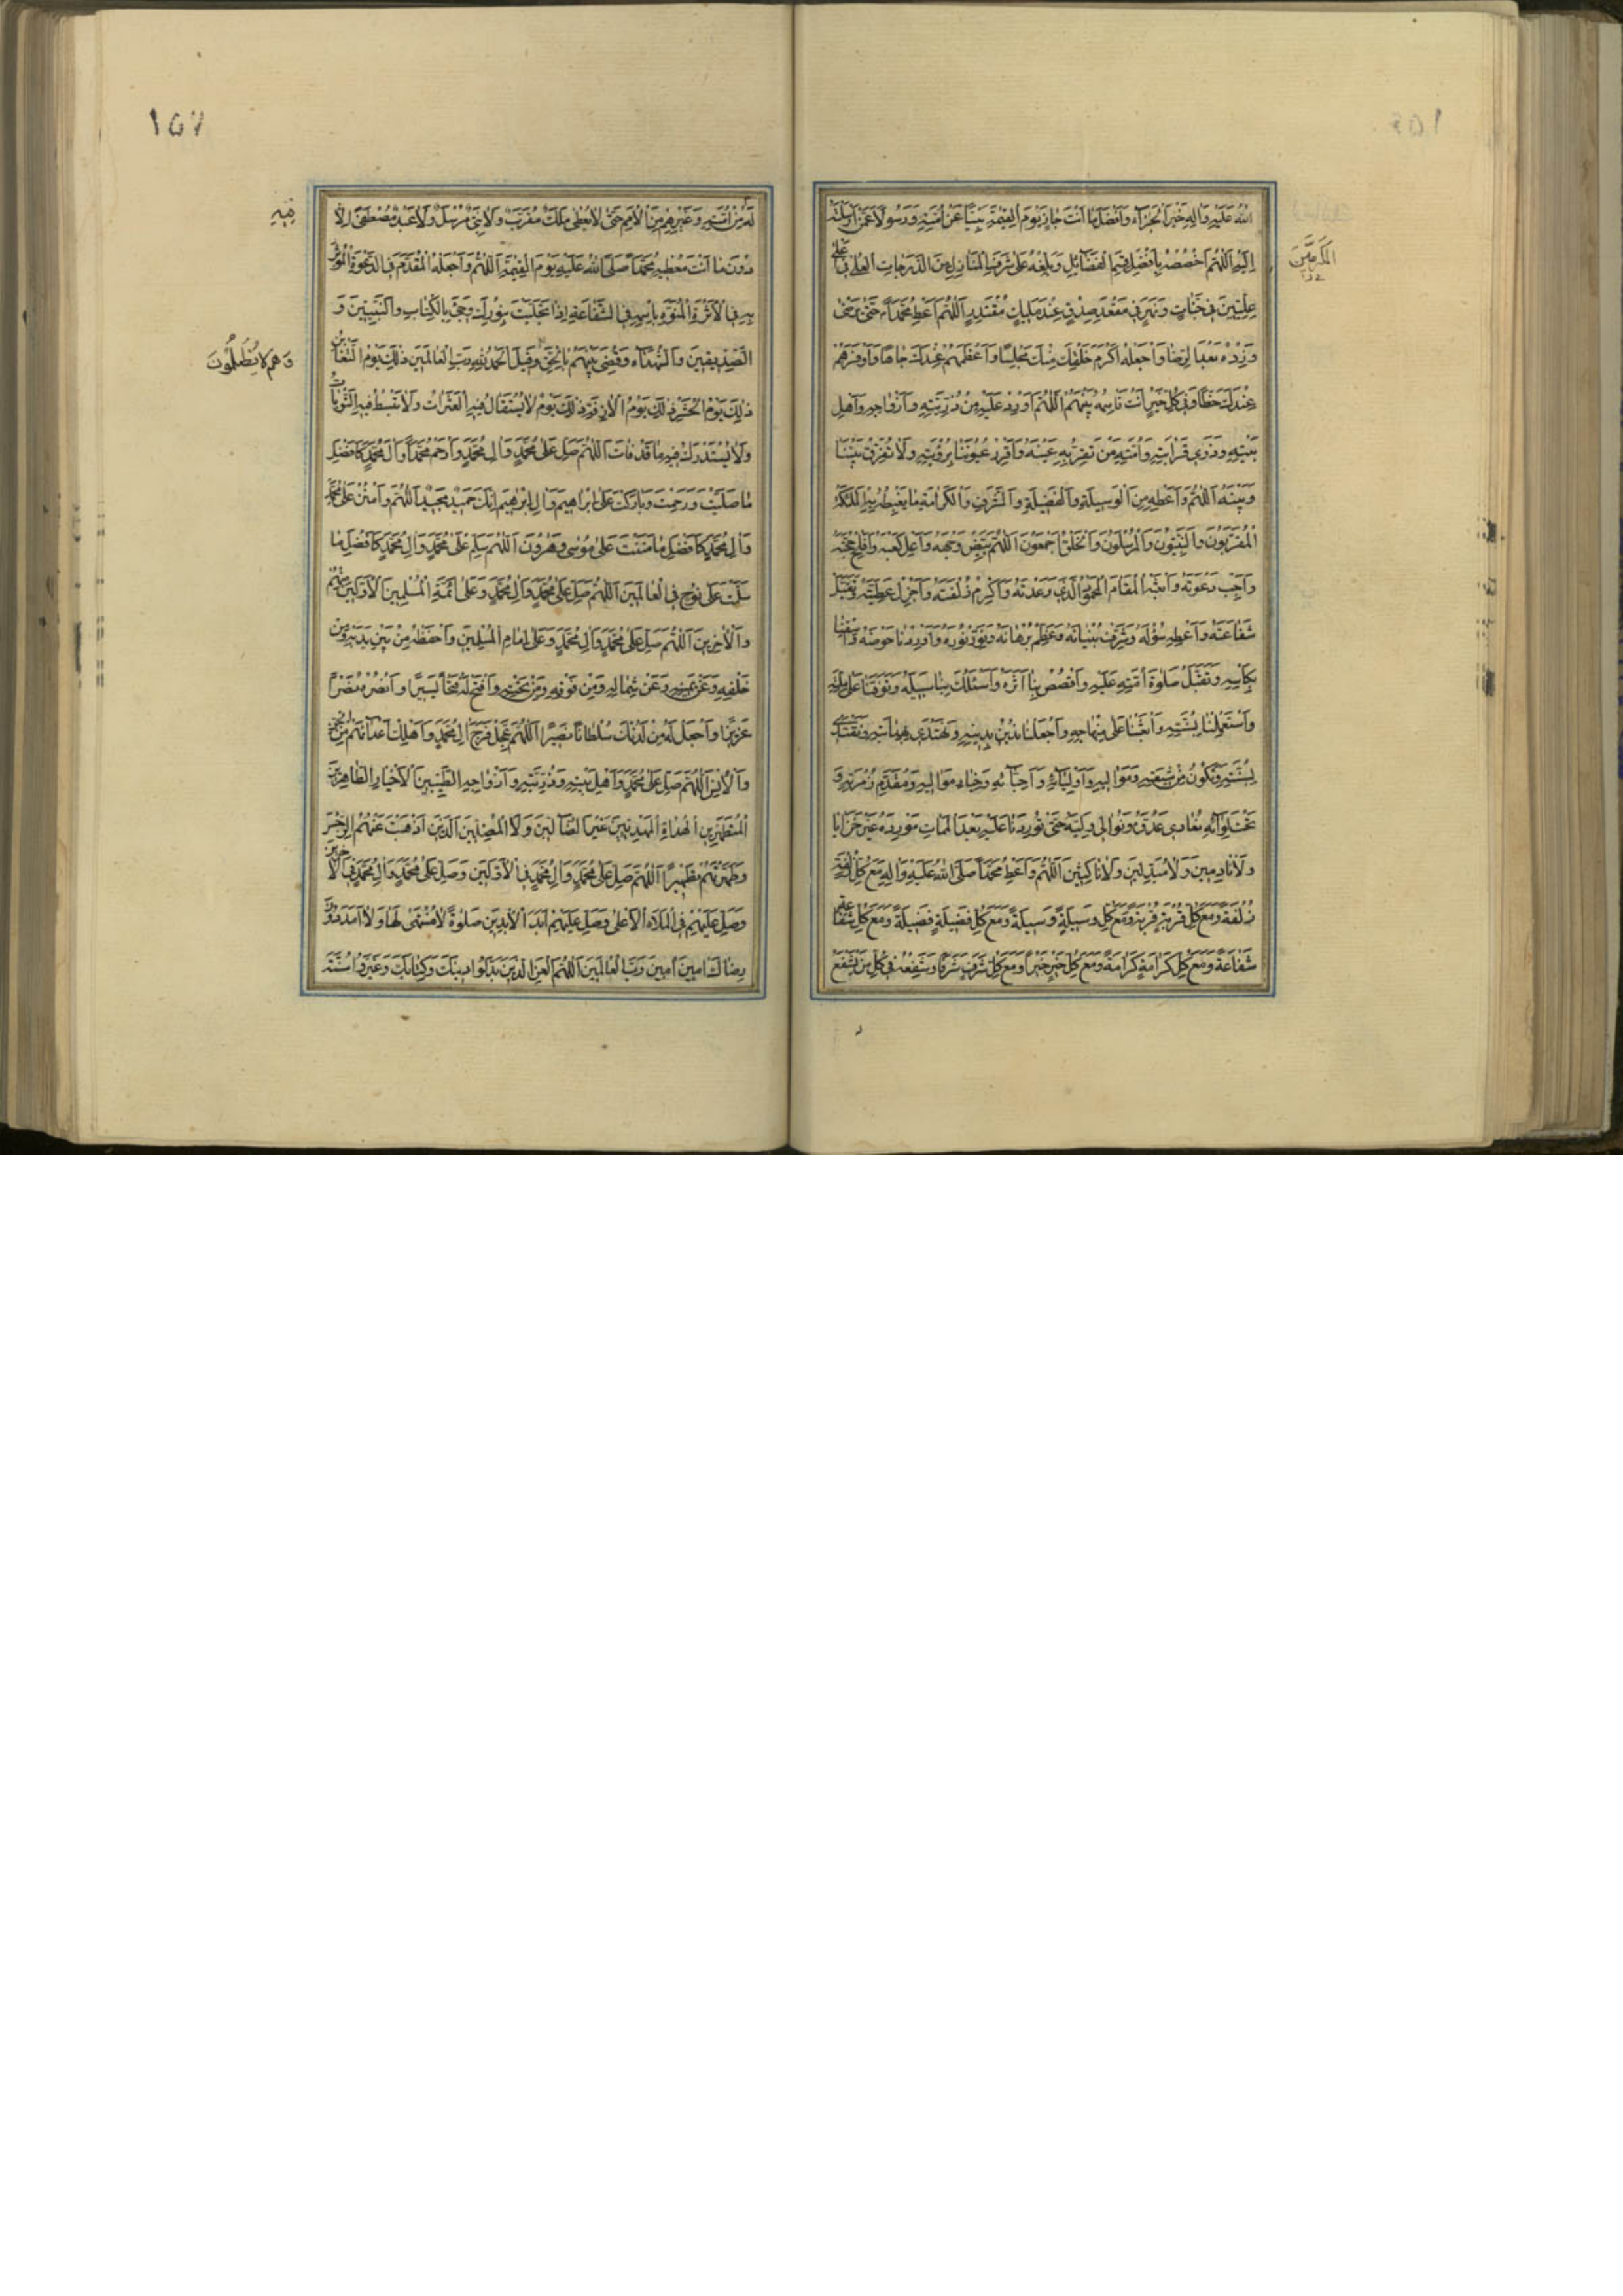 اللهُ عَلَيْهِ وَالِهِ خَيْرَ الْجَزَاءِ وَاَفْضَلَ مَا اَنْتَ جَازٍ يَوْمَ الْقِيٰمَةِ نَبِيًّا عَنْ اُمَّتِهِ وَرَسُولًا عَمَّنْ اَرْسَلْتَهُ
اِلَيْهِ اَللّٰهُمَّ اخْصُصْهُ بِاَفْضَلِ قِسَمِ الْفَضَائِلِ وَبَلِّغْهُ اَعْلٰى شَرَفِ الْمَنَازِلِ مِنَ الدَّرَجَاتِ الْعُلٰى فِى اَعْلٰى
الْمُكَرَّمِينَ
عِلِّيِّينَ فِى جَنَّاتٍ وَنَهَرٍ فِى مَقْعَدِ صِدْقٍ عِنْدَ مَلِيكٍ مُقْتَدِرٍ اَللّٰهُمَّ اَعْطِ مُحَمَّدًا حَتّٰى يَرْضٰى
وَزِدْهُ بَعْدَ الرِّضَا وَاجْعَلْهُ اَكْرَمَ خَلْقِكَ مِنْكَ مَجْلِسًا وَاَعْظَمَهُمْ عِنْدَكَ جَاهًا وَاَوْفَرَهُمْ
عِنْدَكَ حَظًّا فِى كُلِّ خَيْرٍ اَنْتَ قَاسِمُهُ بَيْنَهُمْ اَللّٰهُمَّ اَوْرِدْ عَلَيْهِ مِنْ ذُرِّيَّتِهِ وَاَزْوَاجِهِ وَاَهْلِ
بَيْتِهِ وَذَوِى قَرَابَتِهِ وَاُمَّتِهِ مَنْ تَقِرُّ بِهِ عَيْنُهُ وَاَقْرِرْ عُيُونَنَا بِرُؤْيَتِهِ وَلَا تُفَرِّقْ بَيْنَنَا
وَبَيْنَهُ اَللّٰهُمَّ وَاَعْطِهِ مِنَ الْوَسِيلَةِ وَالْفَضِيلَةِ وَالشَّرَفِ وَالْكَرَامَةِ مَا يَغْبِطُهُ بِهِ الْمَلٰئِكَةُ
الْمُقَرَّبُونَ وَالنَّبِيُّونَ وَالْمُرْسَلُونَ وَالْخَلْقُ اَجْمَعُونَ اَللّٰهُمَّ بَيِّضْ وَجْهَهُ وَاَعْلِ كَعْبَهُ وَاَفْلِجْ حُجَّتَهُ
وَاَجِبْ دَعْوَتَهُ وَابْعَثْهُ الْمَقَامَ الْمَحْمُودَ الَّذِى وَعَدْتَهُ وَاَكْرِمْ زُلْفَتَهُ وَاَجْزِلْ عَطِيَّتَهُ وَتَقَبَّلْ
شَفَاعَتَهُ وَاَعْطِهِ سُؤْلَهُ وَشَرِّفْ بُنْيَانَهُ وَعَظِّمْ بُرْهَانَهُ وَنَوِّرْ نُورَهُ وَاَوْرِدْنَا حَوْضَهُ وَاسْقِنَا
بِكَاْسِهِ وَتَقَبَّلْ صَلٰوةَ اُمَّتِهِ عَلَيْهِ وَاقْصُصْ بِنَا اَثَرَهُ وَاسْلُكْ بِنَا سَبِيلَهُ وَتَوَفَّنَا عَلٰى مِلَّتِهِ
وَاسْتَعْمِلْنَا بِسُنَّتِهِ وَابْعَثْنَا عَلٰى مِنْهَاجِهِ وَاجْعَلْنَا نَدِينُ بِدِينِهِ وَنَهْتَدِى بِهُدَاهُ وَنَقْتَدِى
بِسُنَّتِهِ وَنَكُونُ مِنْ شِيعَتِهِ وَمَوَالِيهِ وَاَوْلِيَائِهِ وَاَحِبَّائِهِ وَخِيَارِ مَوَالِيهِ وَمُقَدَّمِ زُمْرَتِهِ وَ
تَحْتَ لِوَائِهِ نُعَادِى عَدُوَّهُ وَنُوَالِى وَلِيَّهُ حَتّٰى تُورِدَنَا عَلَيْهِ بَعْدَ الْمَمَاتِ مَوْرِدَهُ غَيْرَ خَزَايَا
وَلَا نَادِمِينَ وَلَا مُبَدِّلِينَ وَلَا نَاكِثِينَ اَللّٰهُمَّ وَاَعْطِ مُحَمَّدًا صَلَّى اللهُ عَلَيْهِ وَالِهِ مَعَ كُلِّ زُلْفَةٍ
زُلْفَةً وَمَعَ كُلِّ قُرْبَةٍ قُرْبَةً وَمَعَ كُلِّ وَسِيلَةٍ وَسِيلَةً وَمَعَ كُلِّ فَضِيلَةٍ فَضِيلَةً وَمَعَ كُلِّ شَفَاعَةٍ
شَفَاعَةً وَمَعَ كُلِّ كَرَامَةٍ كَرَامَةً وَمَعَ كُلِّ خَيْرٍ خَيْرًا وَمَعَ كُلِّ شَرَفٍ شَرَفًا وَشَفِّعْهُ فِى كُلِّ مَنْ يَشْفَعُ
١٥٧
لَهُ مِنْ اُمَّتِهِ وَغَيْرِهِمْ مِنَ الْاُمَمِ حَتّٰى لَا يُعْطٰى مَلَكٌ مُقَرَّبٌ وَلَا نَبِىٌّ مُرْسَلٌ وَلَا عَبْدٌ مُصْطَفًى اِلَّا
دُونَ مَا اَنْتَ مُعْطِيهِ مُحَمَّدًا صَلَّى اللهُ عَلَيْهِ يَوْمَ الْقِيٰمَةِ اَللّٰهُمَّ وَاجْعَلْهُ الْمُقَدَّمَ فِى الدَّعْوَةِ وَالْمُؤْثَرَ
بِهِ فِى الْاَثَرَةِ وَالْمُنَوَّهَ بِاسْمِهِ فِى الشَّفَاعَةِ اِذَا تَجَلَّيْتَ بِنُورِكَ وَجِىءَ بِالْكِتَابِ وَالنَّبِيِّينَ وَ
الصِّدِّيقِينَ وَالشُّهَدَاءِ وَقُضِىَ بَيْنَهُمْ بِالْحَقِّ وَقِيلَ الْحَمْدُ لِلّٰهِ رَبِّ الْعَالَمِينَ ذٰلِكَ يَوْمُ التَّغَابُنِ
وَهُمْ لَا يُظْلَمُونَ
ذٰلِكَ يَوْمُ الْحَسْرَةِ ذٰلِكَ يَوْمُ الْاٰزِفَةِ ذٰلِكَ يَوْمٌ لَا يُسْتَقَالُ فِيهِ الْعَثَرَاتُ وَلَا تُبْسَطُ فِيهِ التَّوْبَاتُ
وَلَا يُسْتَدْرَكُ فِيهِ مَا قَدْ فَاتَ اَللّٰهُمَّ صَلِّ عَلٰى مُحَمَّدٍ وَاٰلِ مُحَمَّدٍ وَارْحَمْ مُحَمَّدًا وَاٰلَ مُحَمَّدٍ كَاَفْضَلِ
مَا صَلَّيْتَ وَرَحِمْتَ وَبَارَكْتَ عَلٰى اِبْرٰهِيمَ وَاٰلِ اِبْرٰهِيمَ اِنَّكَ حَمِيدٌ مَجِيدٌ اَللّٰهُمَّ وَامْنُنْ عَلٰى مُحَمَّدٍ
وَاٰلِ مُحَمَّدٍ كَاَفْضَلِ مَا مَنَنْتَ عَلٰى مُوسٰى وَهٰرُونَ اَللّٰهُمَّ سَلِّمْ عَلٰى مُحَمَّدٍ وَاٰلِ مُحَمَّدٍ كَاَفْضَلِ مَا
سَلَّمْتَ عَلٰى نُوحٍ فِى الْعَالَمِينَ اَللّٰهُمَّ صَلِّ عَلٰى مُحَمَّدٍ وَاٰلِ مُحَمَّدٍ وَعَلٰى اَئِمَّةِ الْمُسْلِمِينَ الْاَوَّلِينَ مِنْهُمْ
وَالْاٰخِرِينَ اَللّٰهُمَّ صَلِّ عَلٰى مُحَمَّدٍ وَاٰلِ مُحَمَّدٍ وَعَلٰى اِمَامِ الْمُسْلِمِينَ وَاحْفَظْهُ مِنْ بَيْنِ يَدَيْهِ وَمِنْ
خَلْفِهِ وَعَنْ يَمِينِهِ وَعَنْ شِمَالِهِ وَمِنْ فَوْقِهِ وَمِنْ تَحْتِهِ وَافْتَحْ لَهُ فَتْحًا يَسِيرًا وَانْصُرْهُ نَصْرًا
عَزِيزًا وَاجْعَلْ لَهُ مِنْ لَدُنْكَ سُلْطَانًا نَصِيرًا اَللّٰهُمَّ عَجِّلْ فَرَجَ اٰلِ مُحَمَّدٍ وَاَهْلِكْ اَعْدَائَهُمْ مِنَ الْجِنِّ
وَالْاِنْسِ اَللّٰهُمَّ صَلِّ عَلٰى مُحَمَّدٍ وَاَهْلِ بَيْتِهِ وَذُرِّيَّتِهِ وَاَزْوَاجِهِ الطَّيِّبِينَ الْاَخْيَارِ الطَّاهِرِينَ
الْمُطَهَّرِينَ الْهُدَاةِ الْمَهْدِيِّينَ غَيْرِ الضَّالِّينَ وَلَا الْمُضِلِّينَ الَّذِينَ اَذْهَبْتَ عَنْهُمُ الرِّجْسَ
وَطَهَّرْتَهُمْ تَطْهِيرًا اَللّٰهُمَّ صَلِّ عَلٰى مُحَمَّدٍ وَاٰلِ مُحَمَّدٍ فِى الْاَوَّلِينَ وَصَلِّ عَلٰى مُحَمَّدٍ وَاٰلِ مُحَمَّدٍ فِى الْاٰخِرِينَ
وَصَلِّ عَلَيْهِمْ فِى الْمَلَاءِ الْاَعْلٰى وَصَلِّ عَلَيْهِمْ اَبَدَ الْاٰبِدِينَ صَلٰوةً لَا مُنْتَهٰى لَهَا وَلَا اَمَدَ دُونَ
رِضَاكَ اٰمِينَ اٰمِينَ رَبَّ الْعَالَمِينَ اَللّٰهُمَّ الْعَنِ الَّذِينَ بَدَّلُوا دِينَكَ وَكِتَابَكَ وَغَيَّرُوا سُنَّةَ